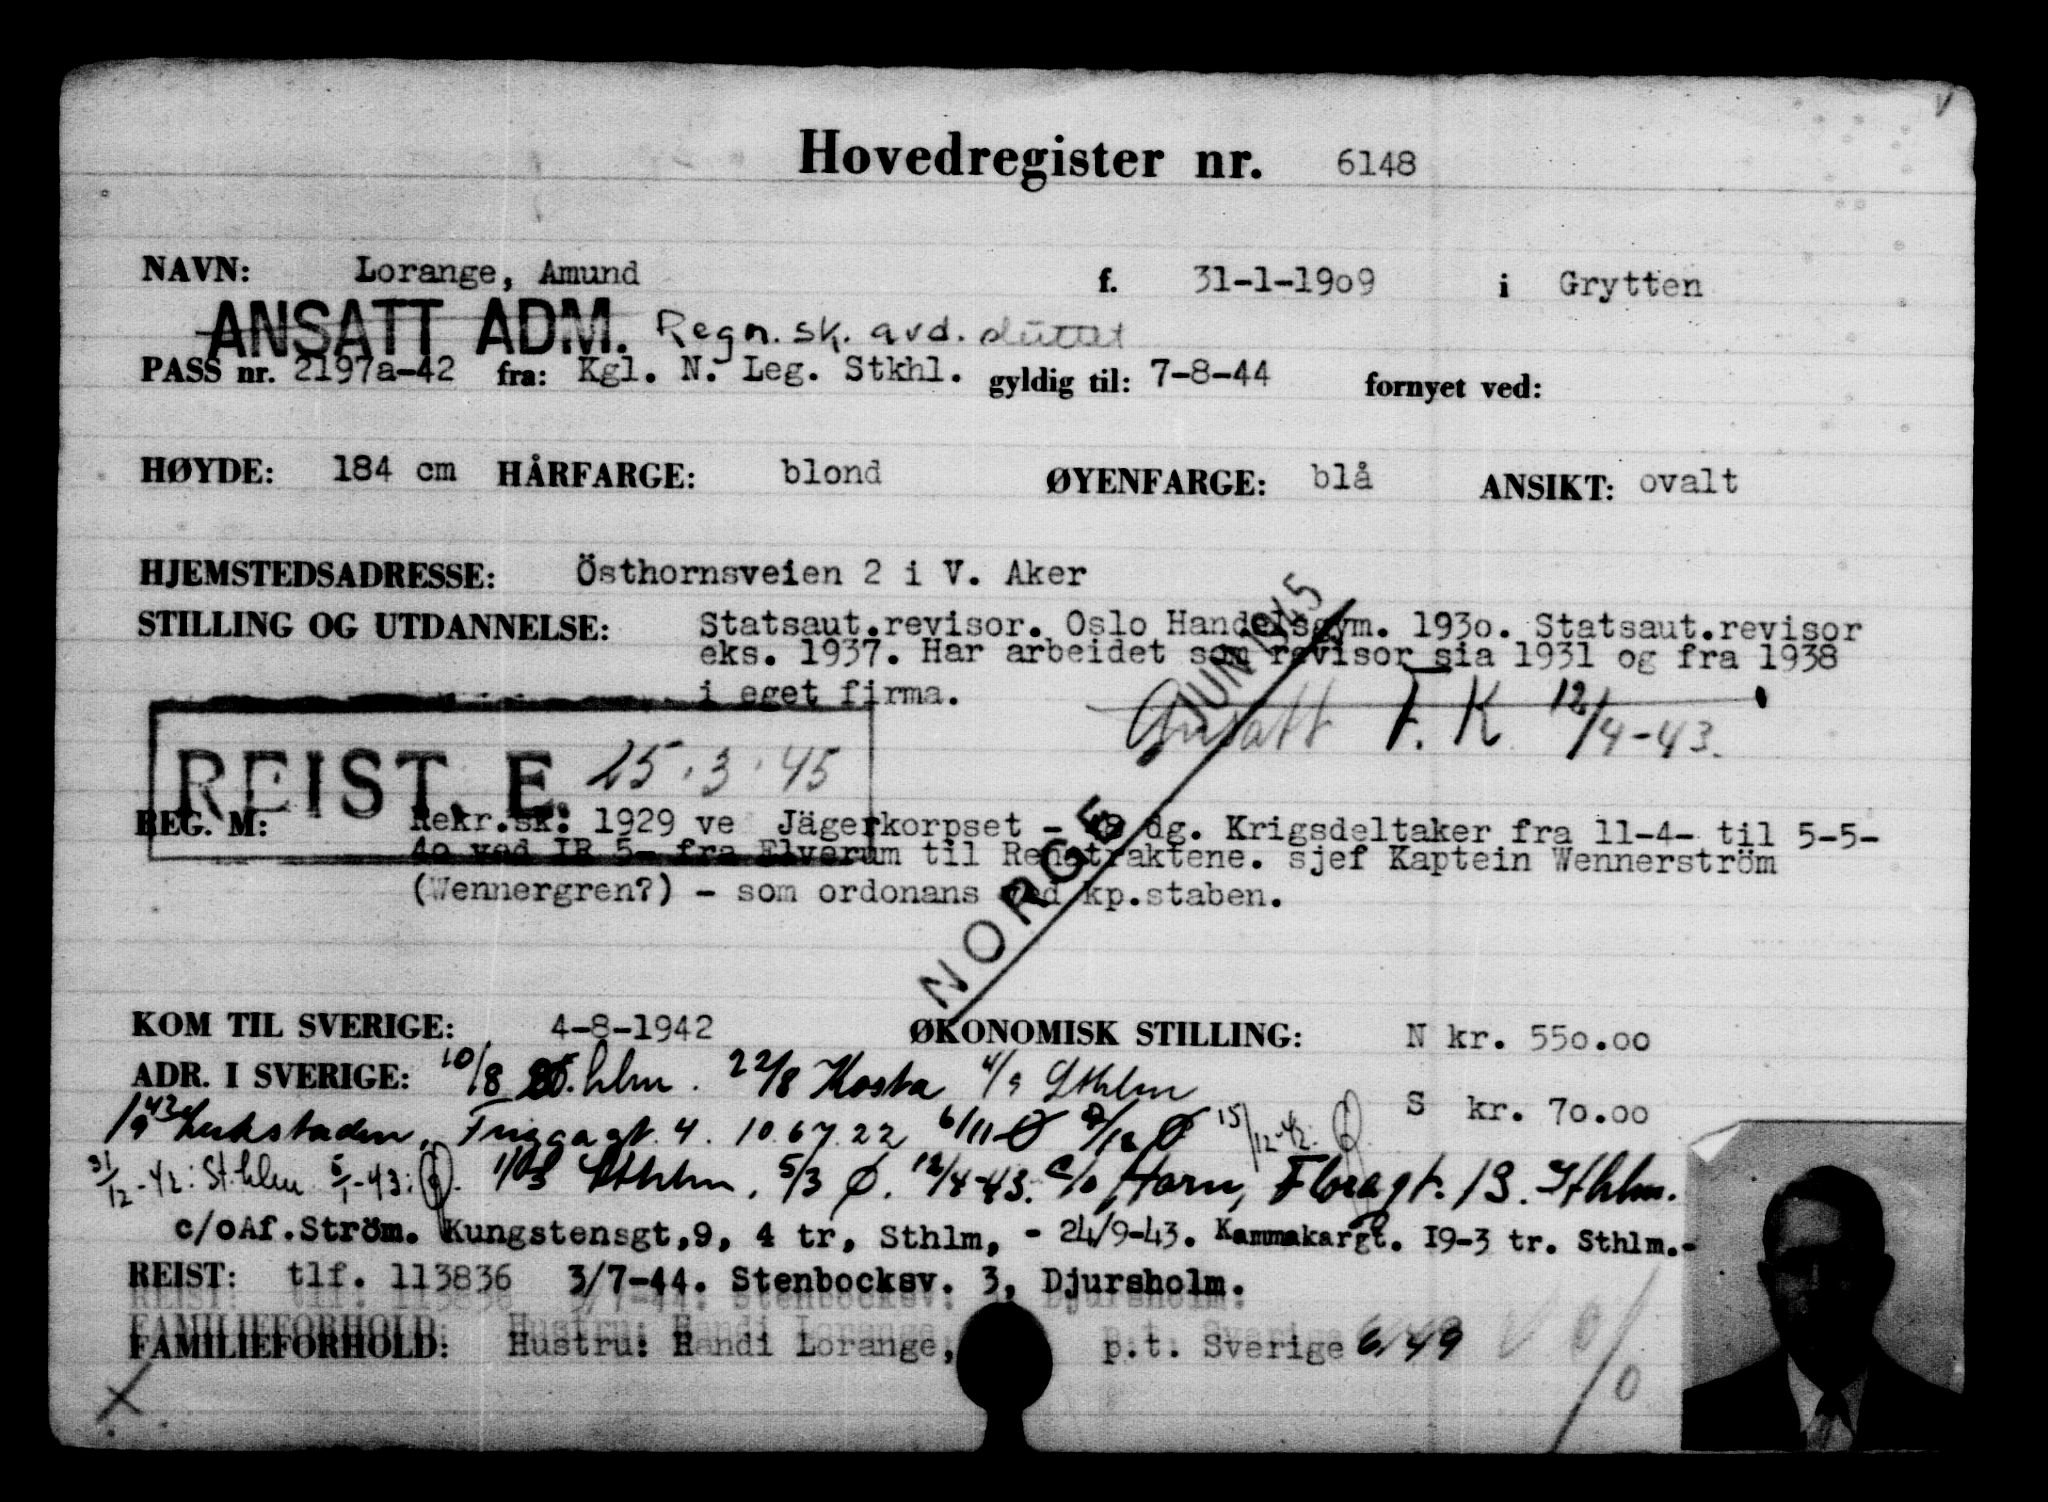 Hovedregister nr. 6148
NAVN: Lorange, Amund f. 31-1-19o9 i Grytten
ANSATT ADM. Regn.sk. avd. sluttet
PASS nr. 2197a-42 fra: Kgl. N. Leg. Stkhl. gyldig til: 7-8-44 fornyet ved:
HØYDE: 184 cm HÅRFARGE: blond ØYENFARGE: blå ANSIKT: ovalt
HJEMSTEDSADRESSE: Östhornsveien 2 i V. Aker
STILLING OG UTDANNELSE: Statsaut.revisor. Oslo Handelsgym. 193o. Statsaut.revisor
eks. 1937. Har arbeidet som revisor sia 1931 og fra 1938
i eget firma.
Ansatt F.K 12/4-43.
REIST. E. 25.3.45
NORGE JUNI 1945
REG. M: Rekr.sk. 1929 ve Jägerkorpset - dg. Krigsdeltaker fra 11-4- til 5-5-
4o ved IR 5- fra Elverum til Renatraktene. sjef Kaptein Wennerström
(Wennergren?) - som ordonans ved kp.staben.
KOM TIL SVERIGE: 4-8-1942 ØKONOMISK STILLING: N kr. 55o.oo
ADR. I SVERIGE: 10/8 St.hlm. 22/8 Kosta 4/9 Sthlm
S kr. 7o.oo
Friggagt. 4. 10.67.22 6/11 Ø /12 Ø 15/12-42. Ø.
31/12-42: St.hlm 5/1-43: Ø. Sthlm, 5/3 Ø. 12/4-43. c/o Horn, Floragt. 13. Sthlm.
c/oAf.Ström. Kungstensgt,9, 4 tr, Sthlm, - 24/9-43. Kammakargt. I9-3 tr. Sthlm.-
REIST: tlf. 113836 3/7-44. Stenbocksv. 3, Djursholm.
FAMILIEFORHOLD: Hustru: Randi Lorange, p.t. Sverige 6149